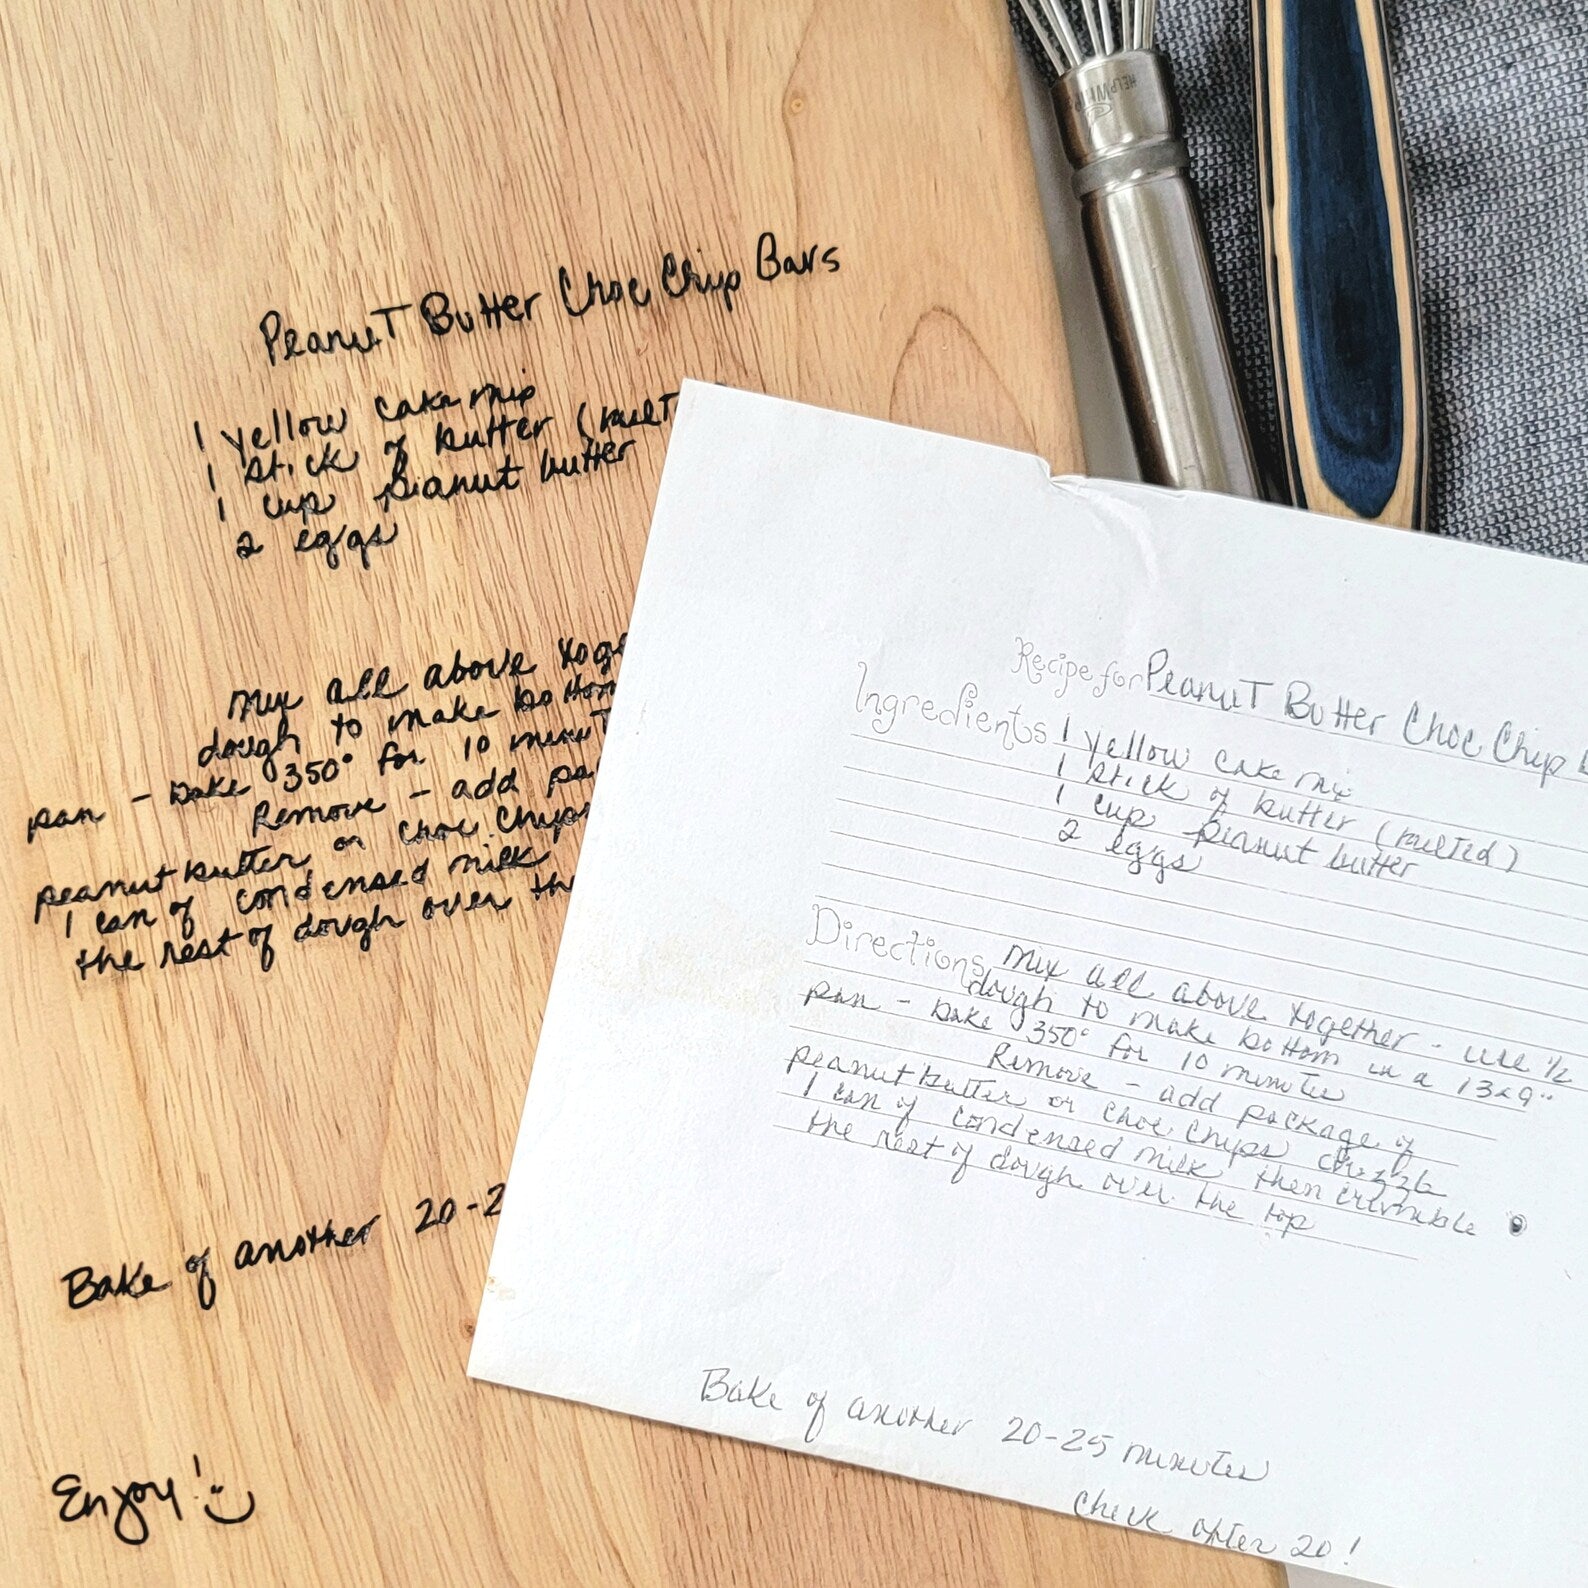 Peanut Butter Choc Chip Bars
1 yellow cake mix
1 stick of butter (melt
1 cup peanut butter
2 eggs
Mix all above toge
dough to make bottom
pan - bake 350° for 10 minut
Remove - add pa
peanut butter or choc. chips
1 can of condensed milk
the rest of dough over th
Bake of another 20-2
Enjoy!
HELPWHIP
Recipe for Peanut Butter Choc Chip B
Ingredients 1 yellow cake mix
1 stick of butter (melted)
1 cup peanut butter
2 eggs
Directions Mix all above together - use 1/2
dough to make bottom in a 13x9"
pan - bake 350° for 10 minutes
Remove - add package of
peanut butter or choc chips drizzle
1 can of condensed milk then crumble
the rest of dough over the top
Bake of another 20-25 minutes
Check after 20!